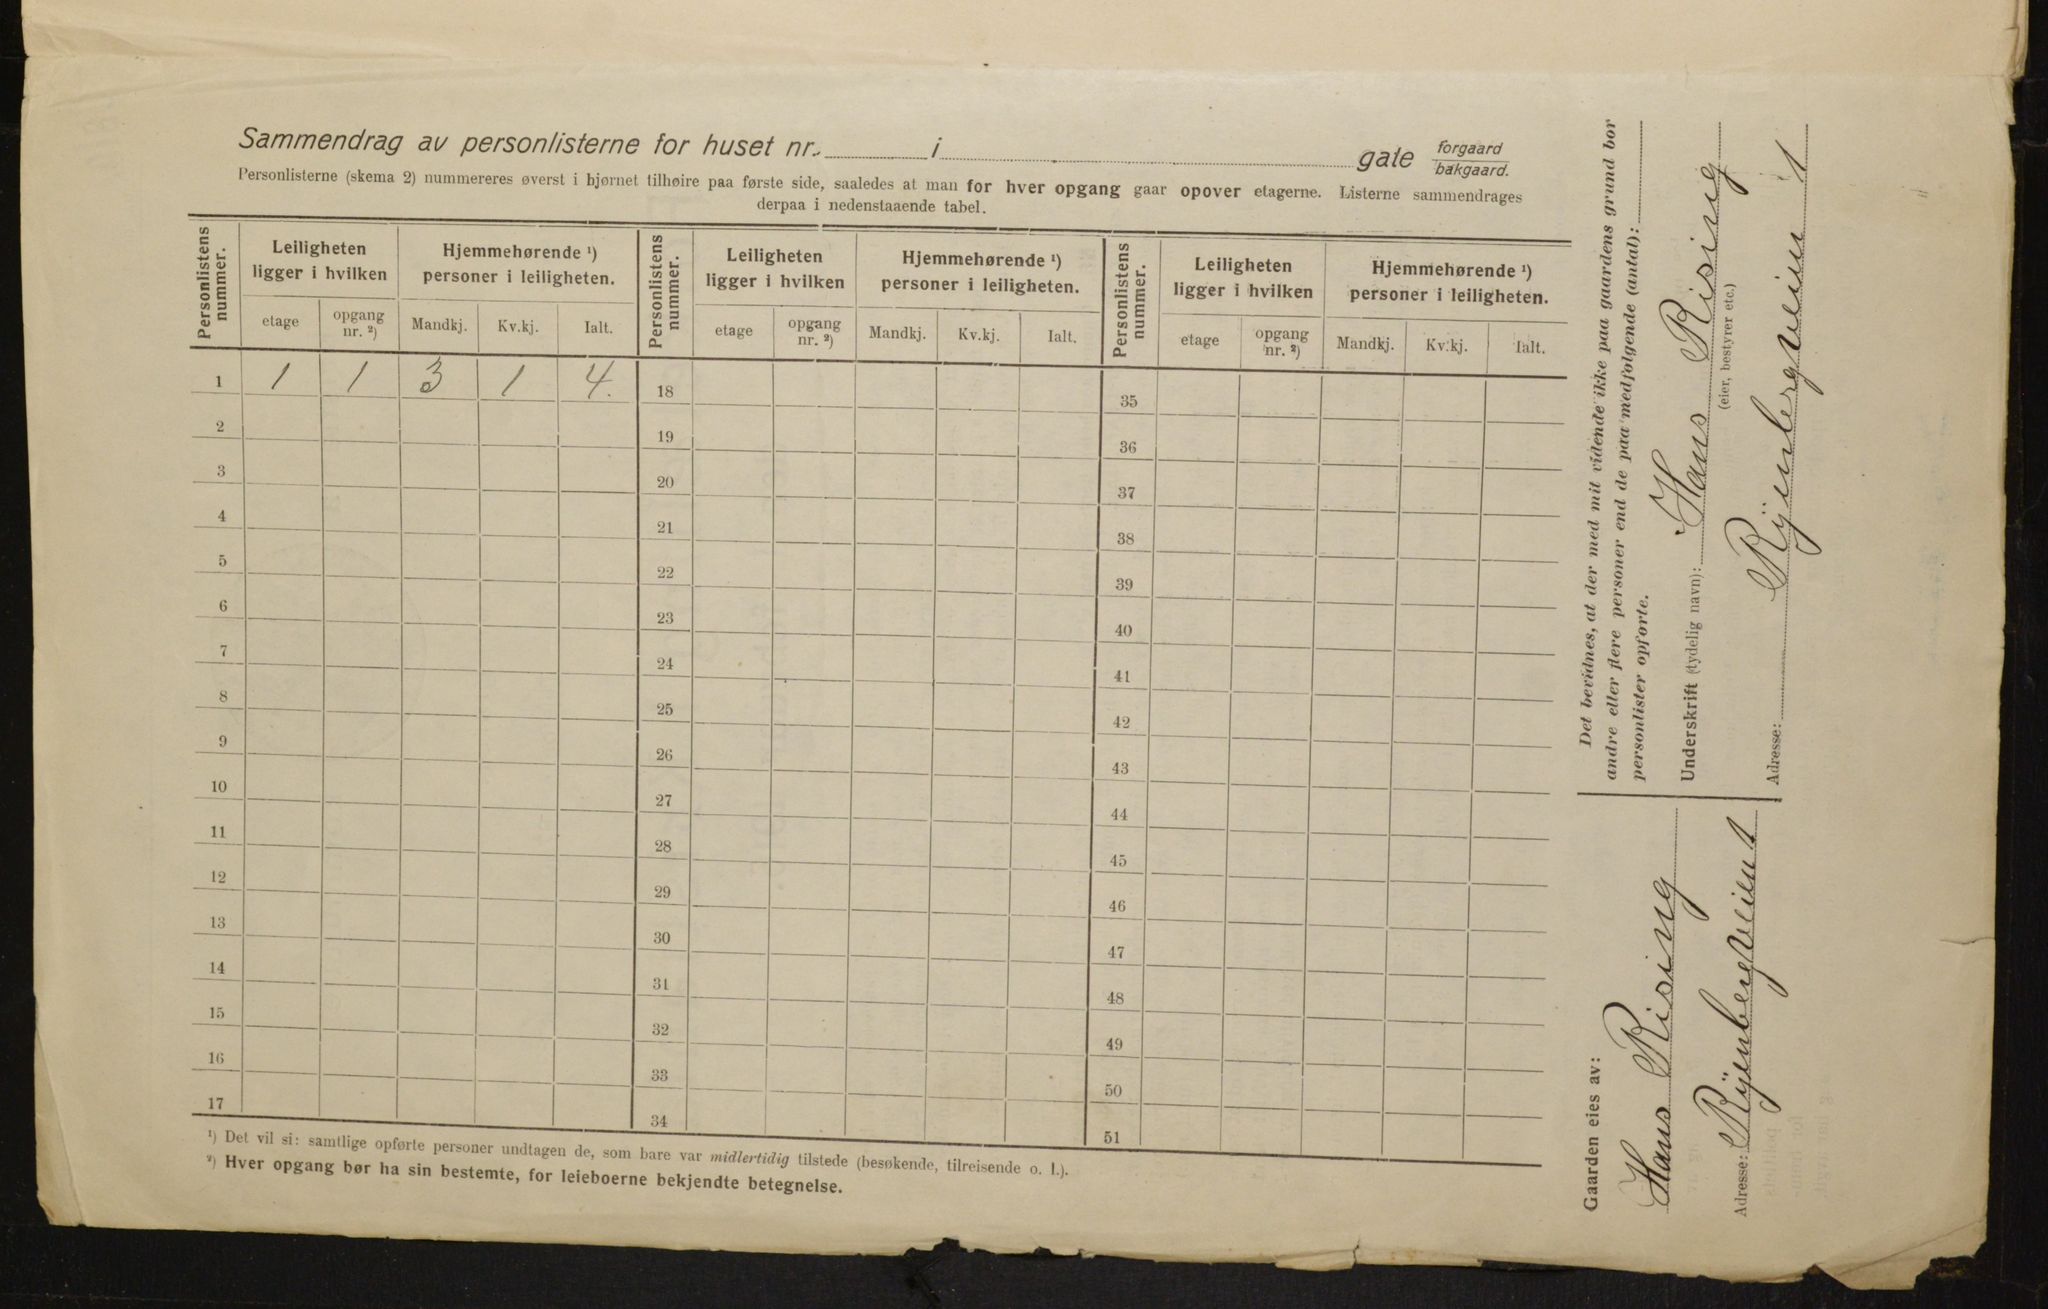 Sammendrag av personlisterne for huset nr. i gate forgaard bakgaard.
Personlisterne (skema 2) nummereres øverst i hjørnet tilhøire paa første side, saaledes at man for hver opgang gaar opover etagerne. Listerne sammendrages
derpaa i nedenstaaende tabel.
Personlistens nummer. Leiligheten ligger i hvilken Hjemmehørende ¹) personer i leiligheten. Personlistens nummer. Leiligheten ligger i hvilken Hjemmehørende ¹) personer i leiligheten. Personlistens nummer. Leiligheten ligger i hvilken Hjemmehørende ¹) personer i leiligheten.
etage opgang nr. ²) Mandkj. Kv.kj. Ialt. etage opgang nr. ²) Mandkj. Kv.kj. Ialt. etage opgang nr. ²) Mandkj. Kv.kj. Ialt.
1 1 1 3 1 4. 18 35
2 19 36
3 20 37
4 21 38
5 22 39
6 23 40
7 24 41
8 25 42
9 26 43
10 27 44
11 28 45
12 29 46
13 30 47
14 31 48
15 32 49
16 33 50
17 34 51
¹) Det vil si: samtlige opførte personer undtagen de, som bare var midlertidig tilstede (besøkende, tilreisende o. l.).
²) Hver opgang bør ha sin bestemte, for leieboerne bekjendte betegnelse.
Det bevidnes, at der med mit vidende ikke paa gaardens grund bor
andre eller flere personer end de paa medfolgende (antal):
personlister opforte.
Underskrift (tydelig navn): Hans Rising
(eier, bestyrer etc.)
Adresse: Ryenbergveien 1
Gaarden eies av:
Hans Rising
Adresse: Ryenbergveien 1